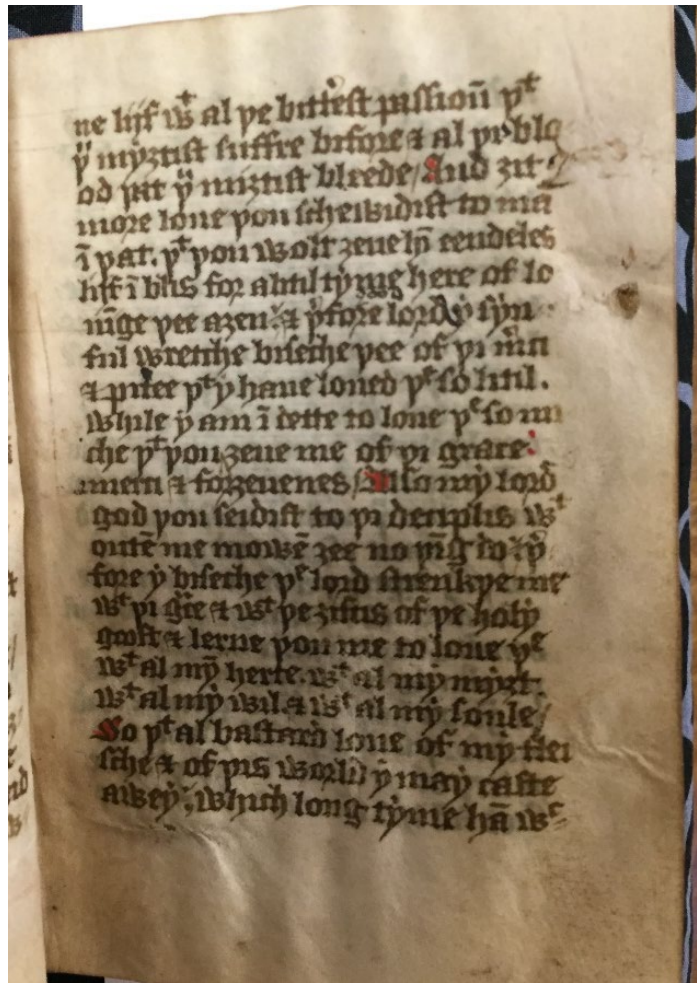 ne lijf wᵗ al þe bittrest passioū þᵗ
þͧ myȝtist suffre bifore & al þi blo
od þat þͧ miȝtist bleede / And ȝit
more loue þou schewidist to ma
ī þat . þᵗ þou wolt ȝeue hȳ eendeles
lijf ī blis for a litil tyme here of lo
uīge þee aȝen . & þͥfore lord y syn
ful wretche biseche þee of þi m̄ci
& pitee þᵗ y haue loued þᵉ so litil .
while y am ī dette to loue þᵉ so mi
che þᵗ þou ȝeue me of þi grace
merci & forȝeuenes / Also my lord
god þou seidist to þi deciplis wᵗ
outē me mowē ȝee no þīg do
fore y biseche þᵉ lord strenkþe me
wᵗ þi gͣce & wᵗ þe ȝiftis of þe holy
goost & lerne þou me to loue þᵉ
wᵗ al my herte . wᵗ al my myȝt .
wᵗ al my wil . & wᵗ al my soule /
So þᵗ al bastard loue of my flei
sche & of þis world y may caste
awey . which long tyme haþ wᵉ